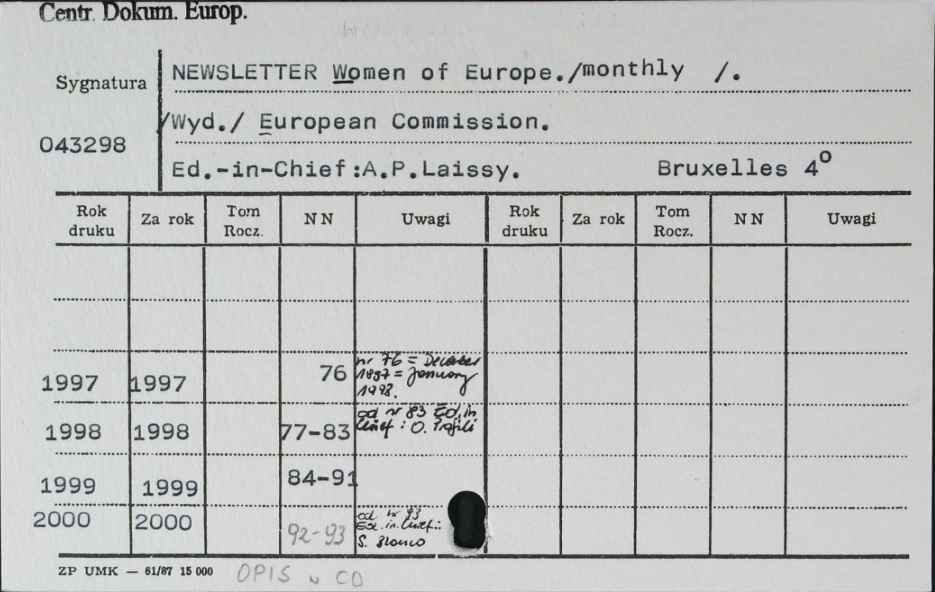 Centr. Dokum. Europ.
Sygnatura
NEWSLETTER Women of Europe./monthly /.
/Wyd./ European Commission.
043298
Ed.-in-Chief:A.P.Laissy. Bruxelles 4°
Rok druku Za rok Tom Rocz. NN Uwagi Rok druku Za rok Tom Rocz. NN Uwagi
1997 1997 76 nr 76 = December
1997 = January
1998.
1998 1998 77-83 od nr 83 Ed. in
Chief: O. Profili
1999 1999 84-91
2000 2000 92-93 od nr 93
Ed. in. Chief.:
S.
ZP UMK — 61/87 15 000 OPIS w CD